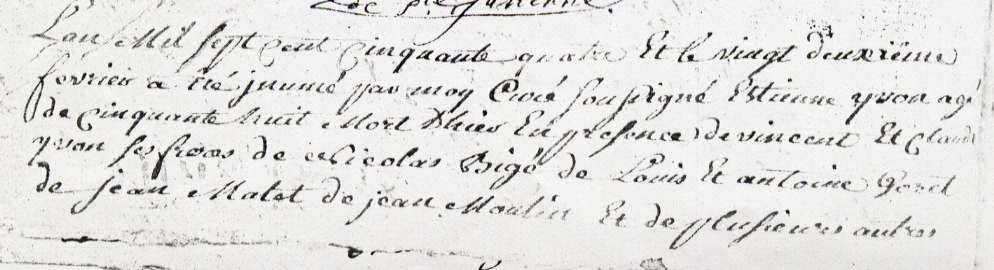 de Ste
L'an Mil sept cent cinquante quatre Et le vingt deuxième
février a été jnumé par moy Curé soussigné Estienne yvon agé
de cinquante huit Mort d'hier En presence de vincent Et claude
yvon ses freres de Nicolas Bigé de Louis Et antoine Goret
de jean Malet de jean Moulin Et de plusieurs autres